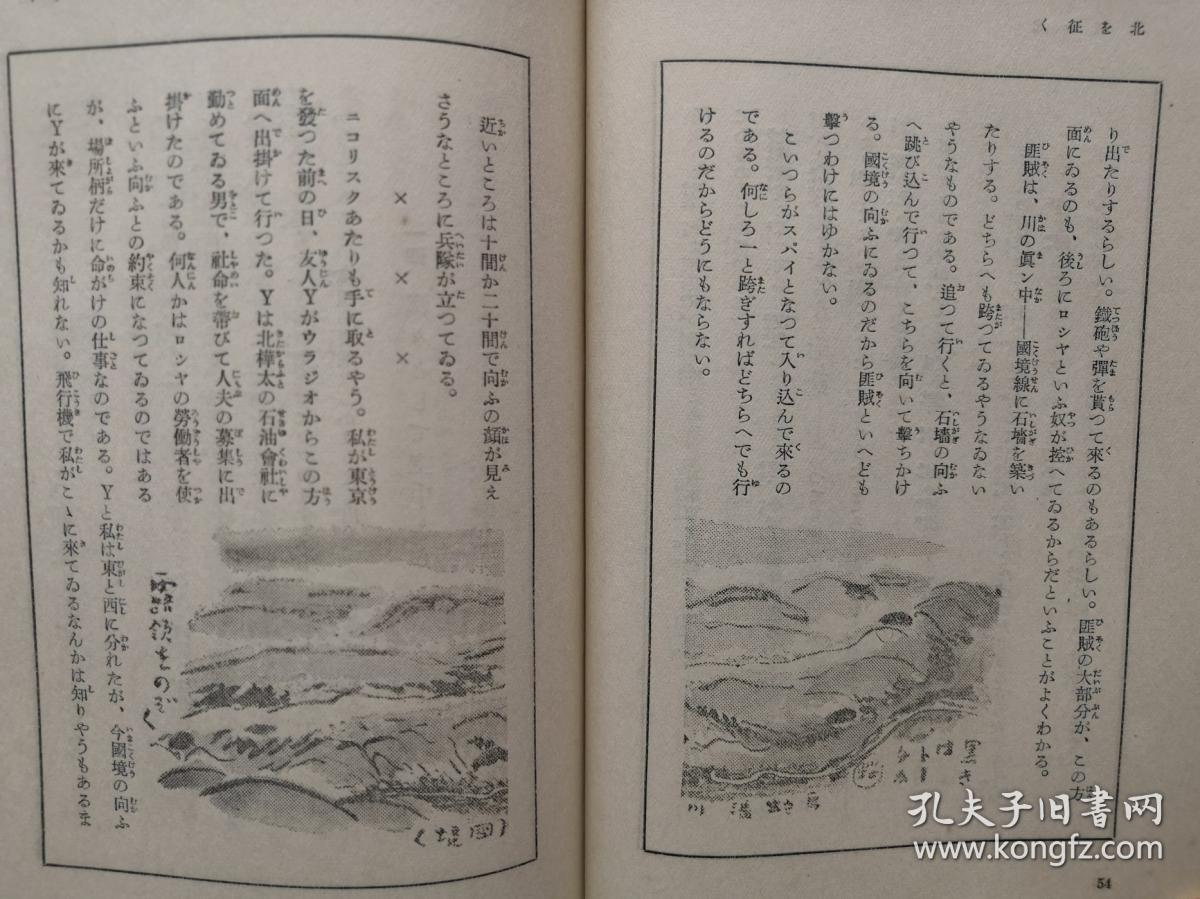 北を征く
り出たりするらしい。鐵砲や彈を貰つて來るのもあるらしい。匪賊の大部分が、この方
面にゐるのも、後ろにロシヤといふ奴が控へてゐるからだといふことがよくわかる。
匪賊は、川の眞ン中――國境線に石墻を築い
たりする。どちらへも跨つてゐるやうなゐない
やうなものである。追つて行くと、石墻の向ふ
へ跳び込んで行つて、こちらを向いて擊ちかけ
る。國境の向ふにゐるのだから匪賊といへども
擊つわけにはゆかない。
こいつらがスパイとなつて入り込んで來るの
である。何しろ一と跨ぎすればどちらへでも行
けるのだからどうにもならない。
54
近いところは十間か二十間で向ふの顏が見え
さうなところに兵隊が立つてゐる。
× × ×
ニコリスクあたりも手に取るやう。私が東京
を發つた前の日、友人Yがウラジオからこの方
面へ出掛けて行つた。Yは北樺太の石油會社に
勤めてゐる男で、社命を帶びて人夫の募集に出
掛けたのである。何人かはロシヤの勞働者を使
ふといふ向ふとの約束になつてゐるのではある
が、場所柄だけに命がけの仕事なのである。Yと私は東と西に分れたが、今國境の向ふ
にYが來てゐるかも知れない。飛行機で私がこゝに來てゐるなんかは知りやうもあるま
露領をのぞく
(國境)
孔夫子旧书网
www.kongfz.com